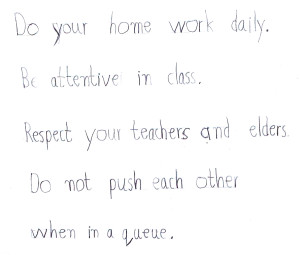 Do your home work daily.
Be attentive in class.
Respect your teachers and elders.
Do not push each other
when in a queue.